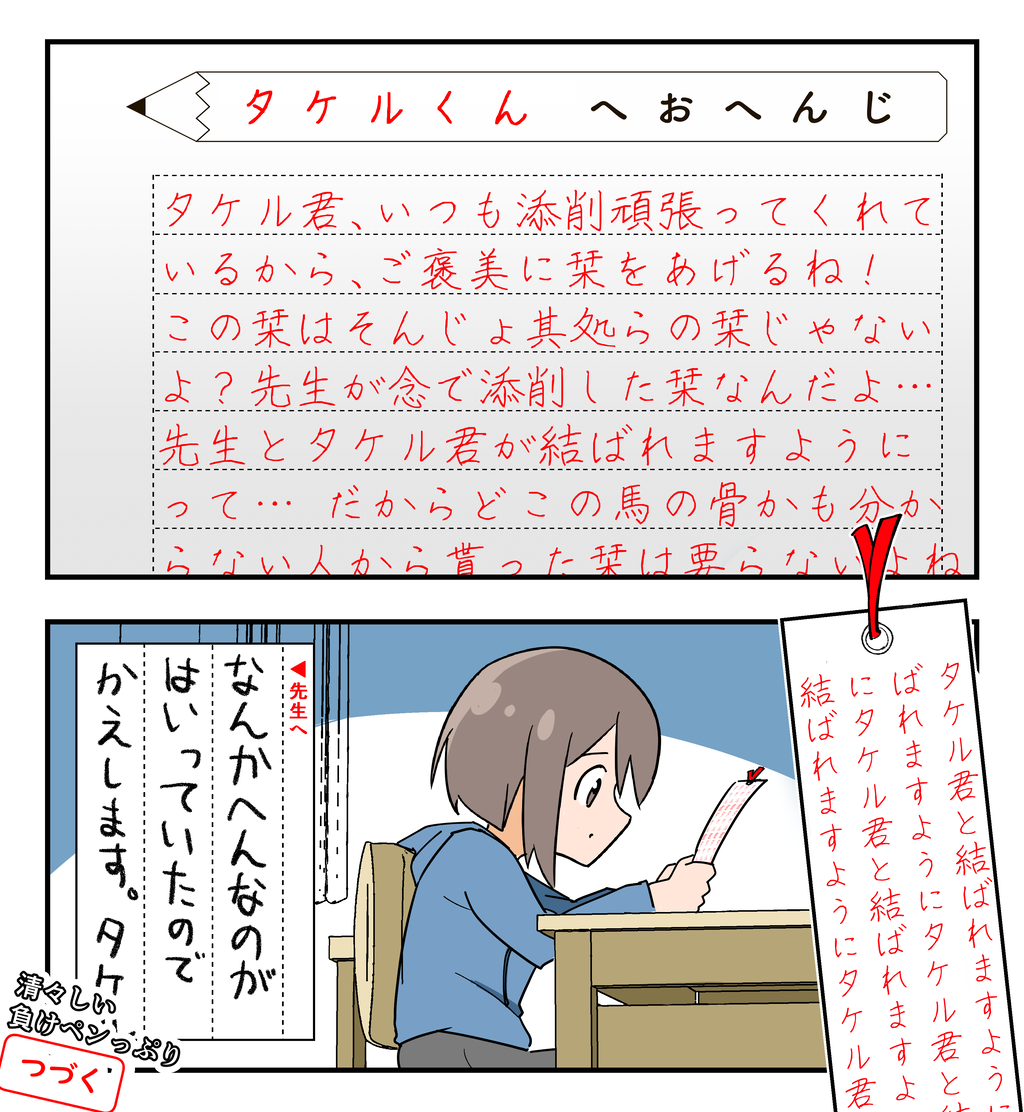 タケルくん へおへんじ
タケル君、いつも添削頑張ってくれて
いるから、ご褒美に栞をあげるね！
この栞はそんじょ其処らの栞じゃない
よ？先生が念で添削した栞なんだよ…
先生とタケル君が結ばれますように
って… だからどこの馬の骨かも分か
らない人から貰った栞は要らないよね
◀先生へ
なんかへんなのが
はいっていたので
かえします。タケ
タケル君と結ばれますように
ばれますようにタケル君と結
にタケル君と結ばれますよ
結ばれますようにタケル君
清々しい
負けペンっぷり
つづく